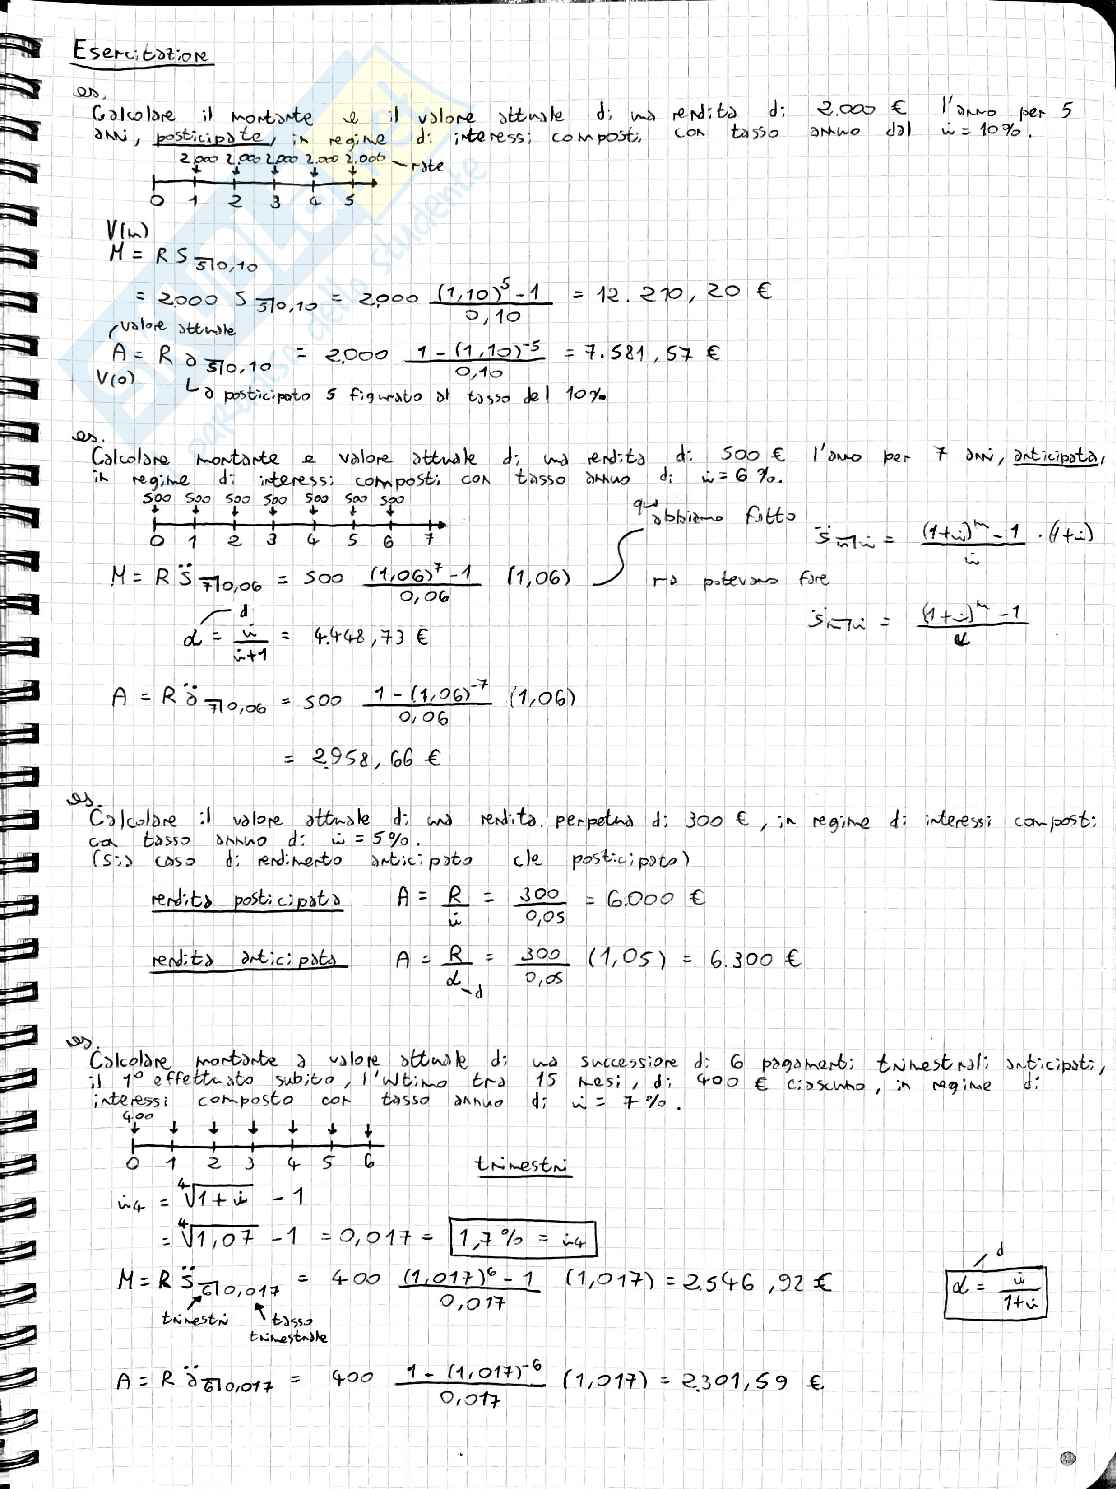 Esercitazione
es.
Calcolare il montante e il valore attuale di una rendita di 2.000 € l'anno per 5
anni, posticipate, in regime di interessi composti, con tasso annuo dal i = 10%.
2.000 2.000 2.000 2.000 2.000 rate
0 1 2 3 4 5
V(n)
M = R S 5|0,10
= 2.000 S 5|0,10 = 2.000 (1,10)^5 - 1 / 0,10 = 12.210,20 €
valore attuale
A = R a 5|0,10 = 2.000 1 - (1,10)^-5 / 0,10 = 7.581,57 €
V(0) a posticipato 5 figurato al tasso del 10%
es.
Calcolare montante e valore attuale di una rendita di 500 € l'anno per 7 anni, anticipata,
in regime di interessi composti con tasso annuo di i = 6%.
500 500 500 500 500 500 500
0 1 2 3 4 5 6 7
qua abbiamo fatto s̈ n|i = (1+i)^n - 1 / i · (1+i)
M = R S̈ 7|0,06 = 500 (1,06)^7 - 1 / 0,06 (1,06)
ma potevamo fare
s̈ n|i = (1+i)^n - 1 / d
d
d = i / i+1 = 4.448,73 €
A = R ä 7|0,06 = 500 1 - (1,06)^-7 / 0,06 (1,06)
= 2.958,66 €
es.
Calcolare il valore attuale di una rendita perpetua di 300 €, in regime di interessi composti
con tasso annuo di i = 5%.
(sia caso di rendimento anticipato che posticipato)
rendita posticipata A = R / i = 300 / 0,05 = 6.000 €
rendita anticipata A = R / d = 300 / 0,05 (1,05) = 6.300 €
d
es.
Calcolare montante a valore attuale di una successione di 6 pagamenti trimestrali anticipati,
il 1° effettuato subito, l'ultimo tra 15 mesi, di 400 € ciascuno, in regime di
interessi composto con tasso annuo di i = 7%.
400
0 1 2 3 4 5 6 trimestri
i4 = ⁴√1+i - 1
= ⁴√1,07 - 1 = 0,017 = 1,7% = i4
M = R S̈ 6|0,017 = 400 (1,017)^6 - 1 / 0,017 (1,017) = 2.546,92 €
trimestri tasso trimestrale
d
d = i / 1+i
A = R ä 6|0,017 = 400 1 - (1,017)^-6 / 0,017 (1,017) = 2.301,59 €